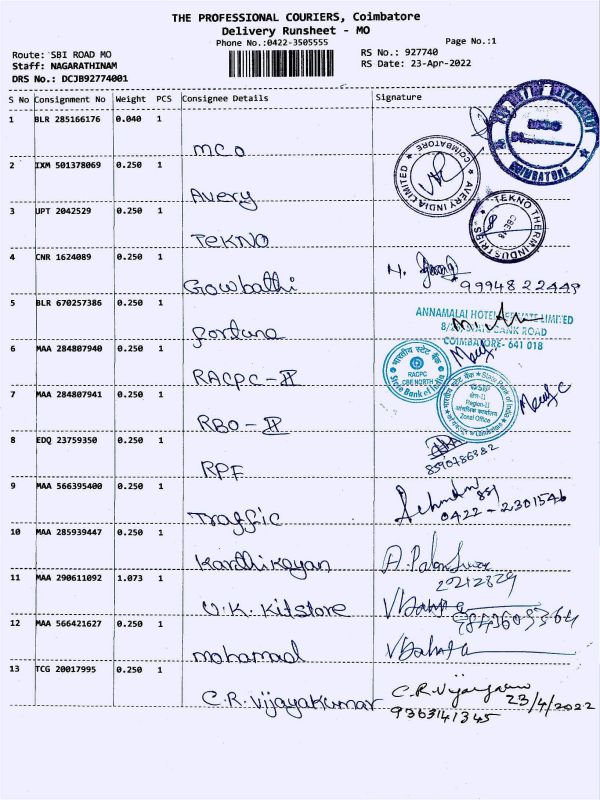 THE PROFESSIONAL COURIERS, Coimbatore
Delivery Runsheet - MO
Phone No.:0422-3505555
Page No.:1
Route: SBI ROAD MO
RS No.: 927740
Staff: NAGARATHINAM
RS Date: 23-Apr-2022
DRS No.: DCJB92774001
S No Consignment No Weight PCS Consignee Details Signature
1 BLR 285166176 0.040 1
MCO
COIMBATORE
2 IXM 501378069 0.250 1
Avery
AVERY INDIA LIMITED
COIMBATORE
3 UPT 2042529 0.250 1
TEKNO
TEKNO THERM INDUSTRIES
CBE-18
4 CNR 1624089 0.250 1
Gowbathi
N.
99948 22449
5 BLR 670257386 0.250 1
fortune
ANNAMALAI HOTELS PRIVATE LIMITED
8/28, STATE BANK ROAD
COIMBATORE - 641 018
6 MAA 284807940 0.250 1
RACPC-II
भारतीय स्टेट बैंक
RACPC
CBE NORTH
State Bank of India
7 MAA 284807941 0.250 1
RBO-II
भारतीय स्टेट बैंक State Bank of India
SBI
क्षेत्र-II
Region-II
Zonal Office
Coimbatore
8 EDQ 23759350 0.250 1
RPF
8590786382
9 MAA 566395400 0.250 1
Traffic
0422-2301546
10 MAA 285939447 0.250 1
Karthikeyan
11 MAA 290611092 1.073 1
U.K. Kitstore
12 MAA 566421627 0.250 1
mohamad
13 TCG 20017995 0.250 1
C.R.Vijayakumar
C.R.
9363141345
23/4/2022